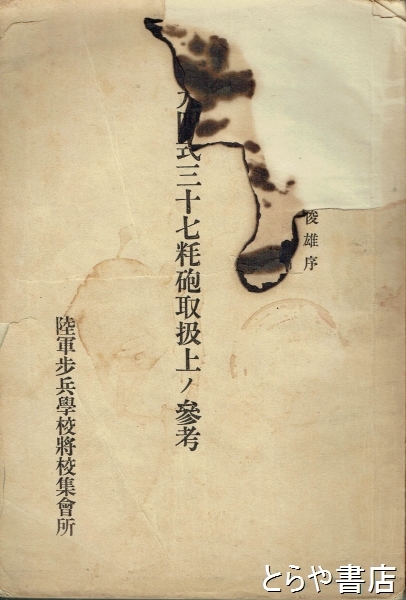 俊雄序
式三十七粍砲取扱上ノ參考
陸軍步兵學校將校集會所
とらや書店